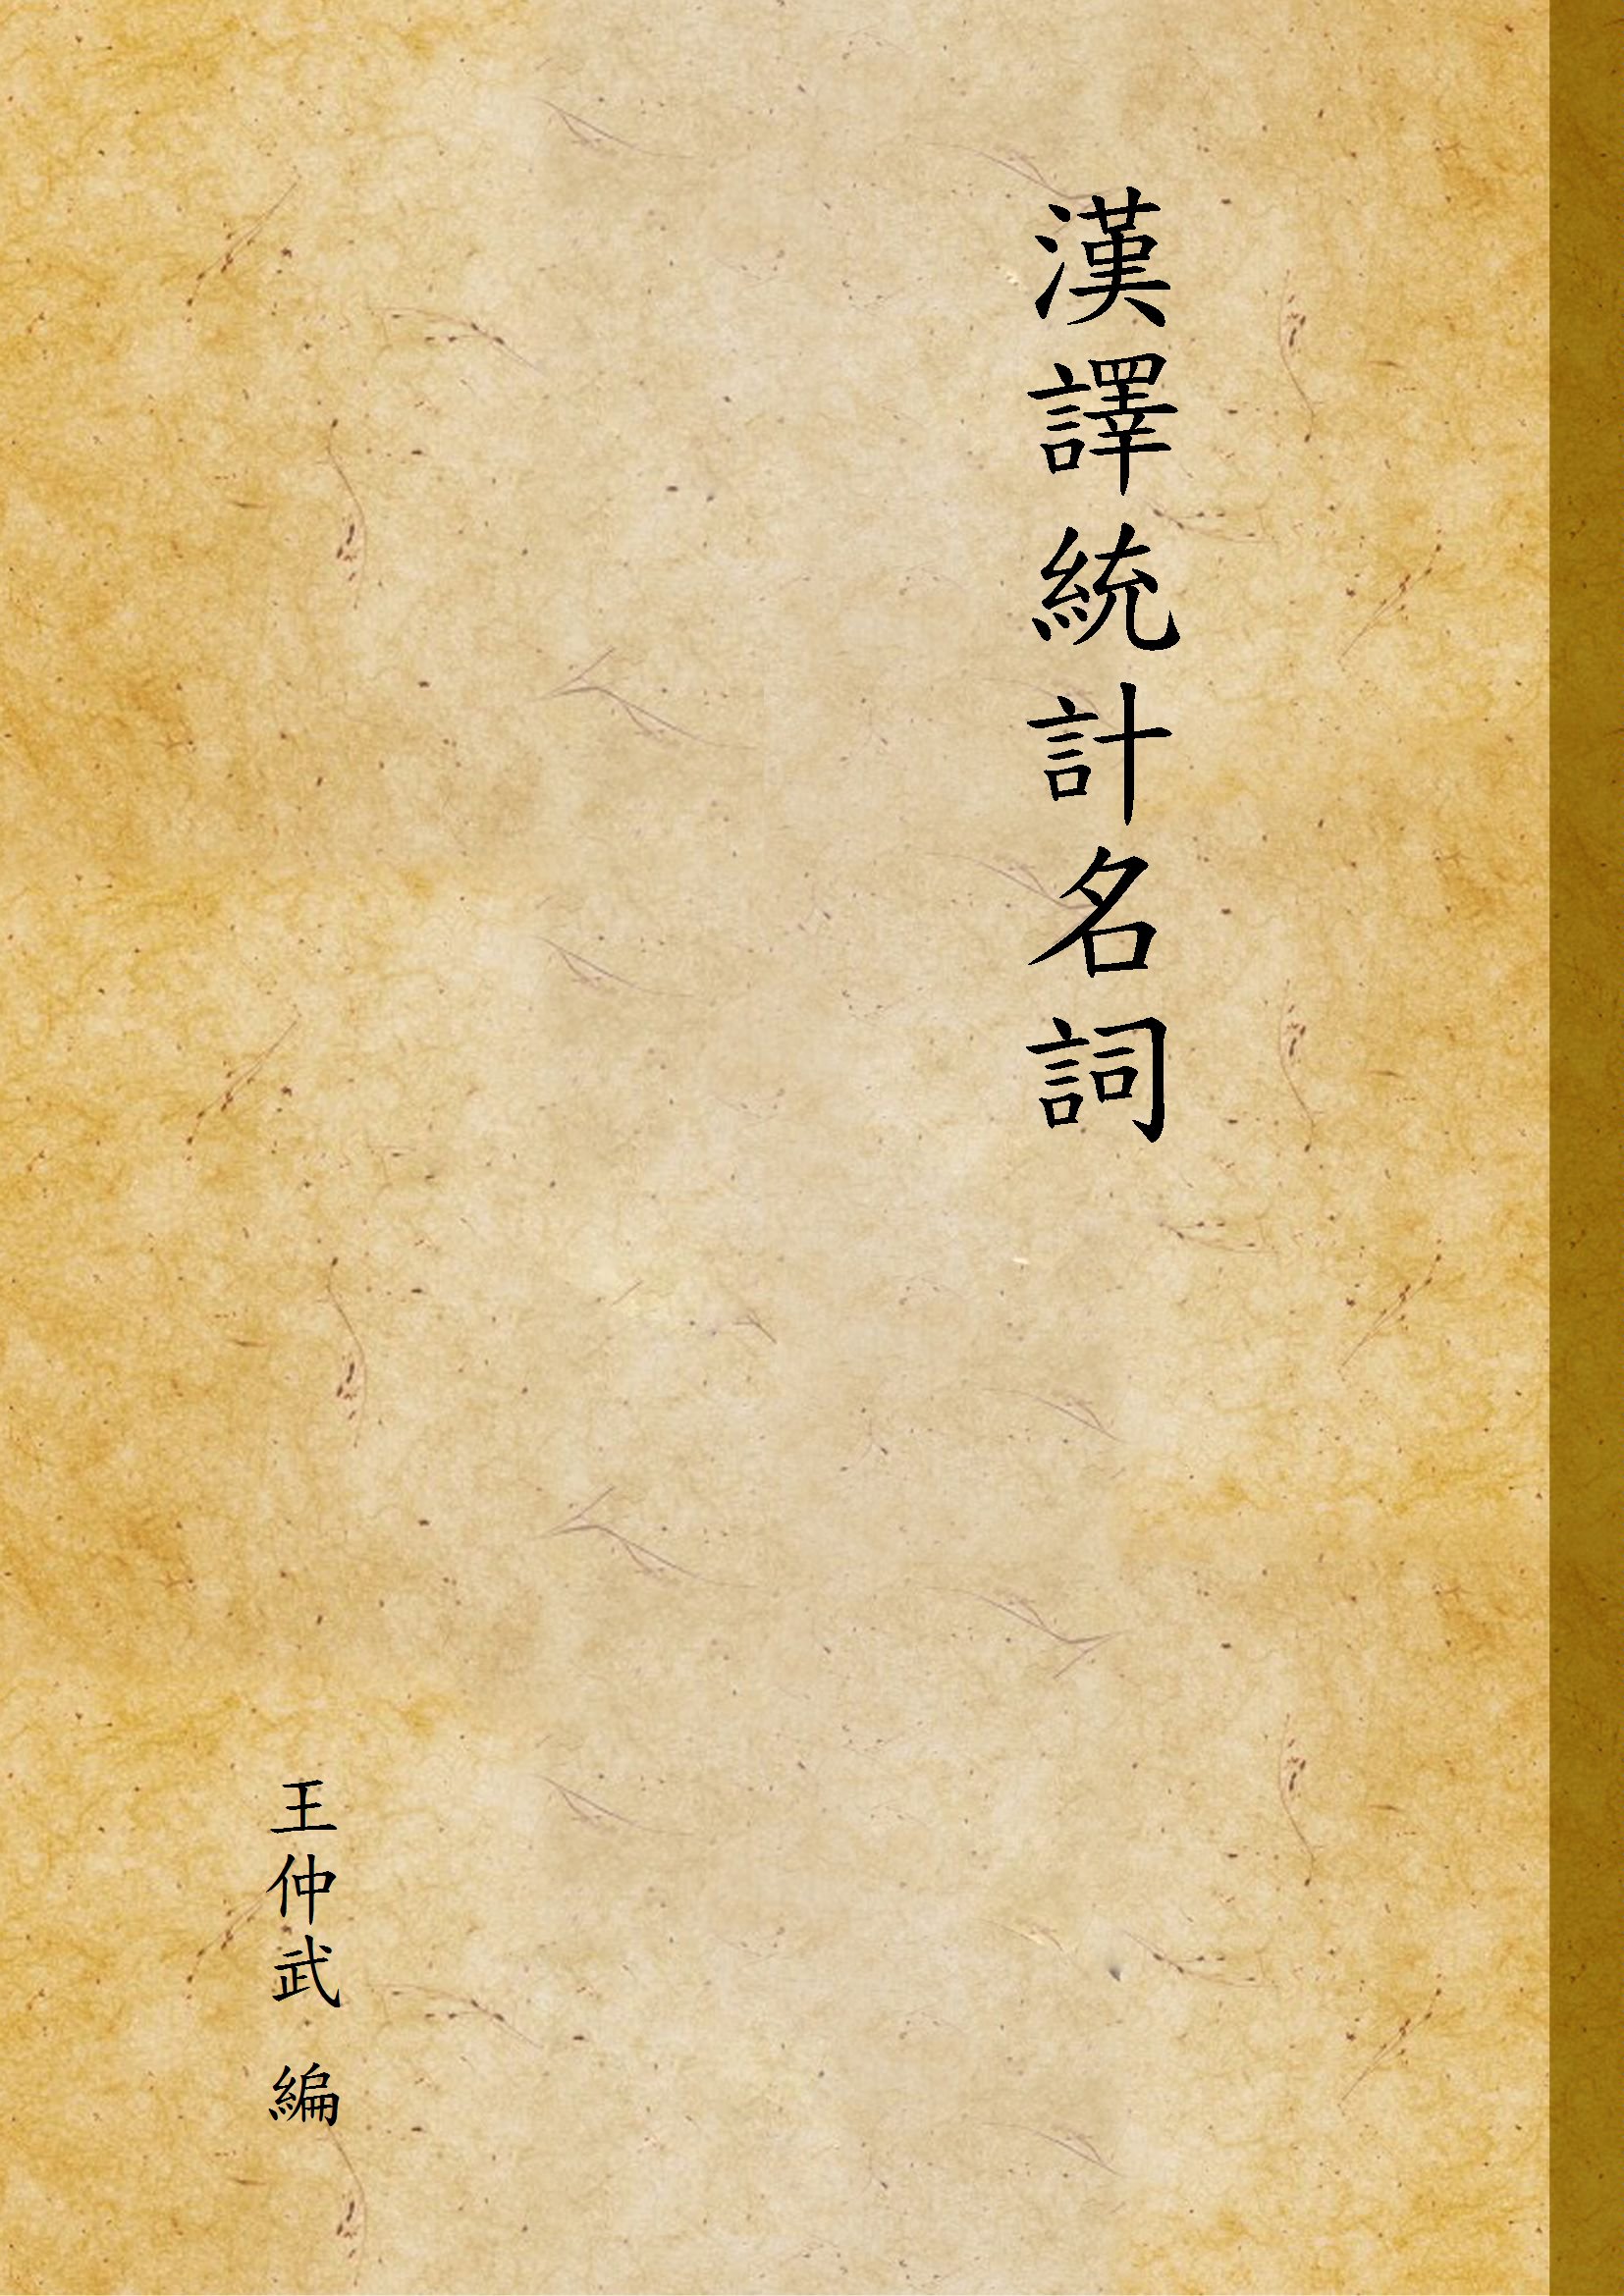 漢譯統計名詞
王仲武 編